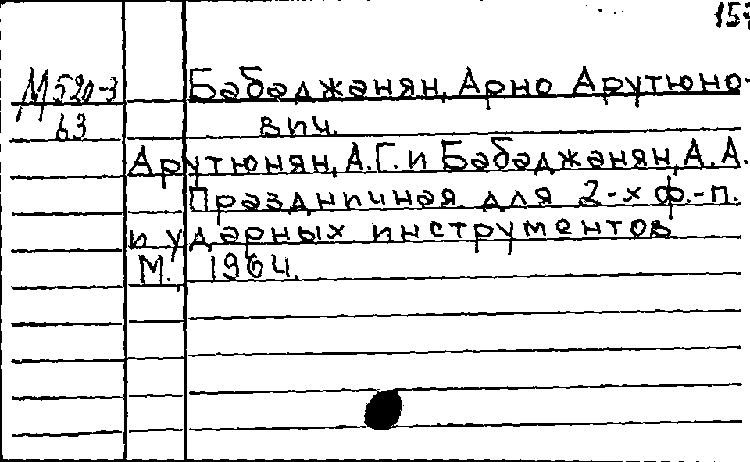 157
М 520-3 Бабаджанян, Арно Арутюно-
63 вич.
Арутюнян, А.Г. и Бабаджанян, А.А.
Праздничная для 2-х ф.-п.
и ударных инструментов
М., 1964.